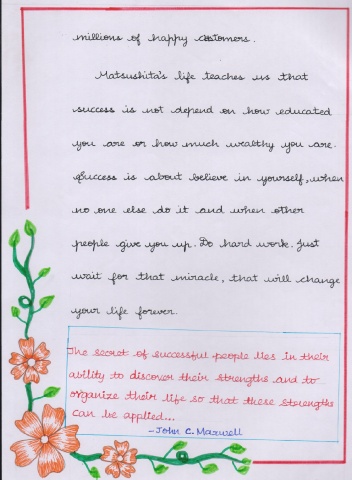 millions of happy customers.
Matsushita's life teaches us that
success is not depend on how educated
you are or how much wealthy you are.
Success is about believe in yourself, when
no one else do it and when other
people give you up. Do hard work. Just
wait for that miracle, that will change
your life forever.
The secret of successful people lies in their
ability to discover their strengths and to
organize their life so that these strengths
can be applied...
-John C. Maxwell